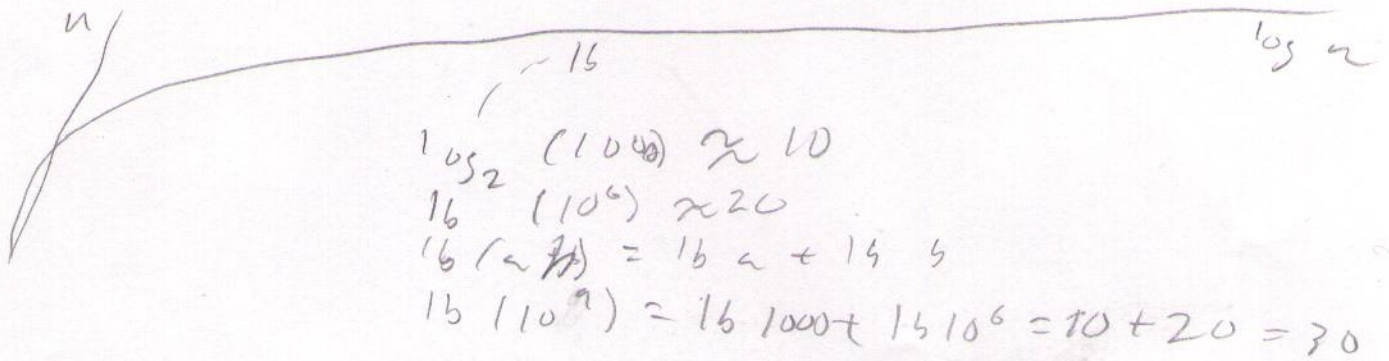 n
log n
lb
log₂ (1000) ≈ 10
lb (10⁶) ≈ 20
lb (a b) = lb a + lb b
lb (10⁹) = lb 1000 + lb 10⁶ = 10 + 20 = 30